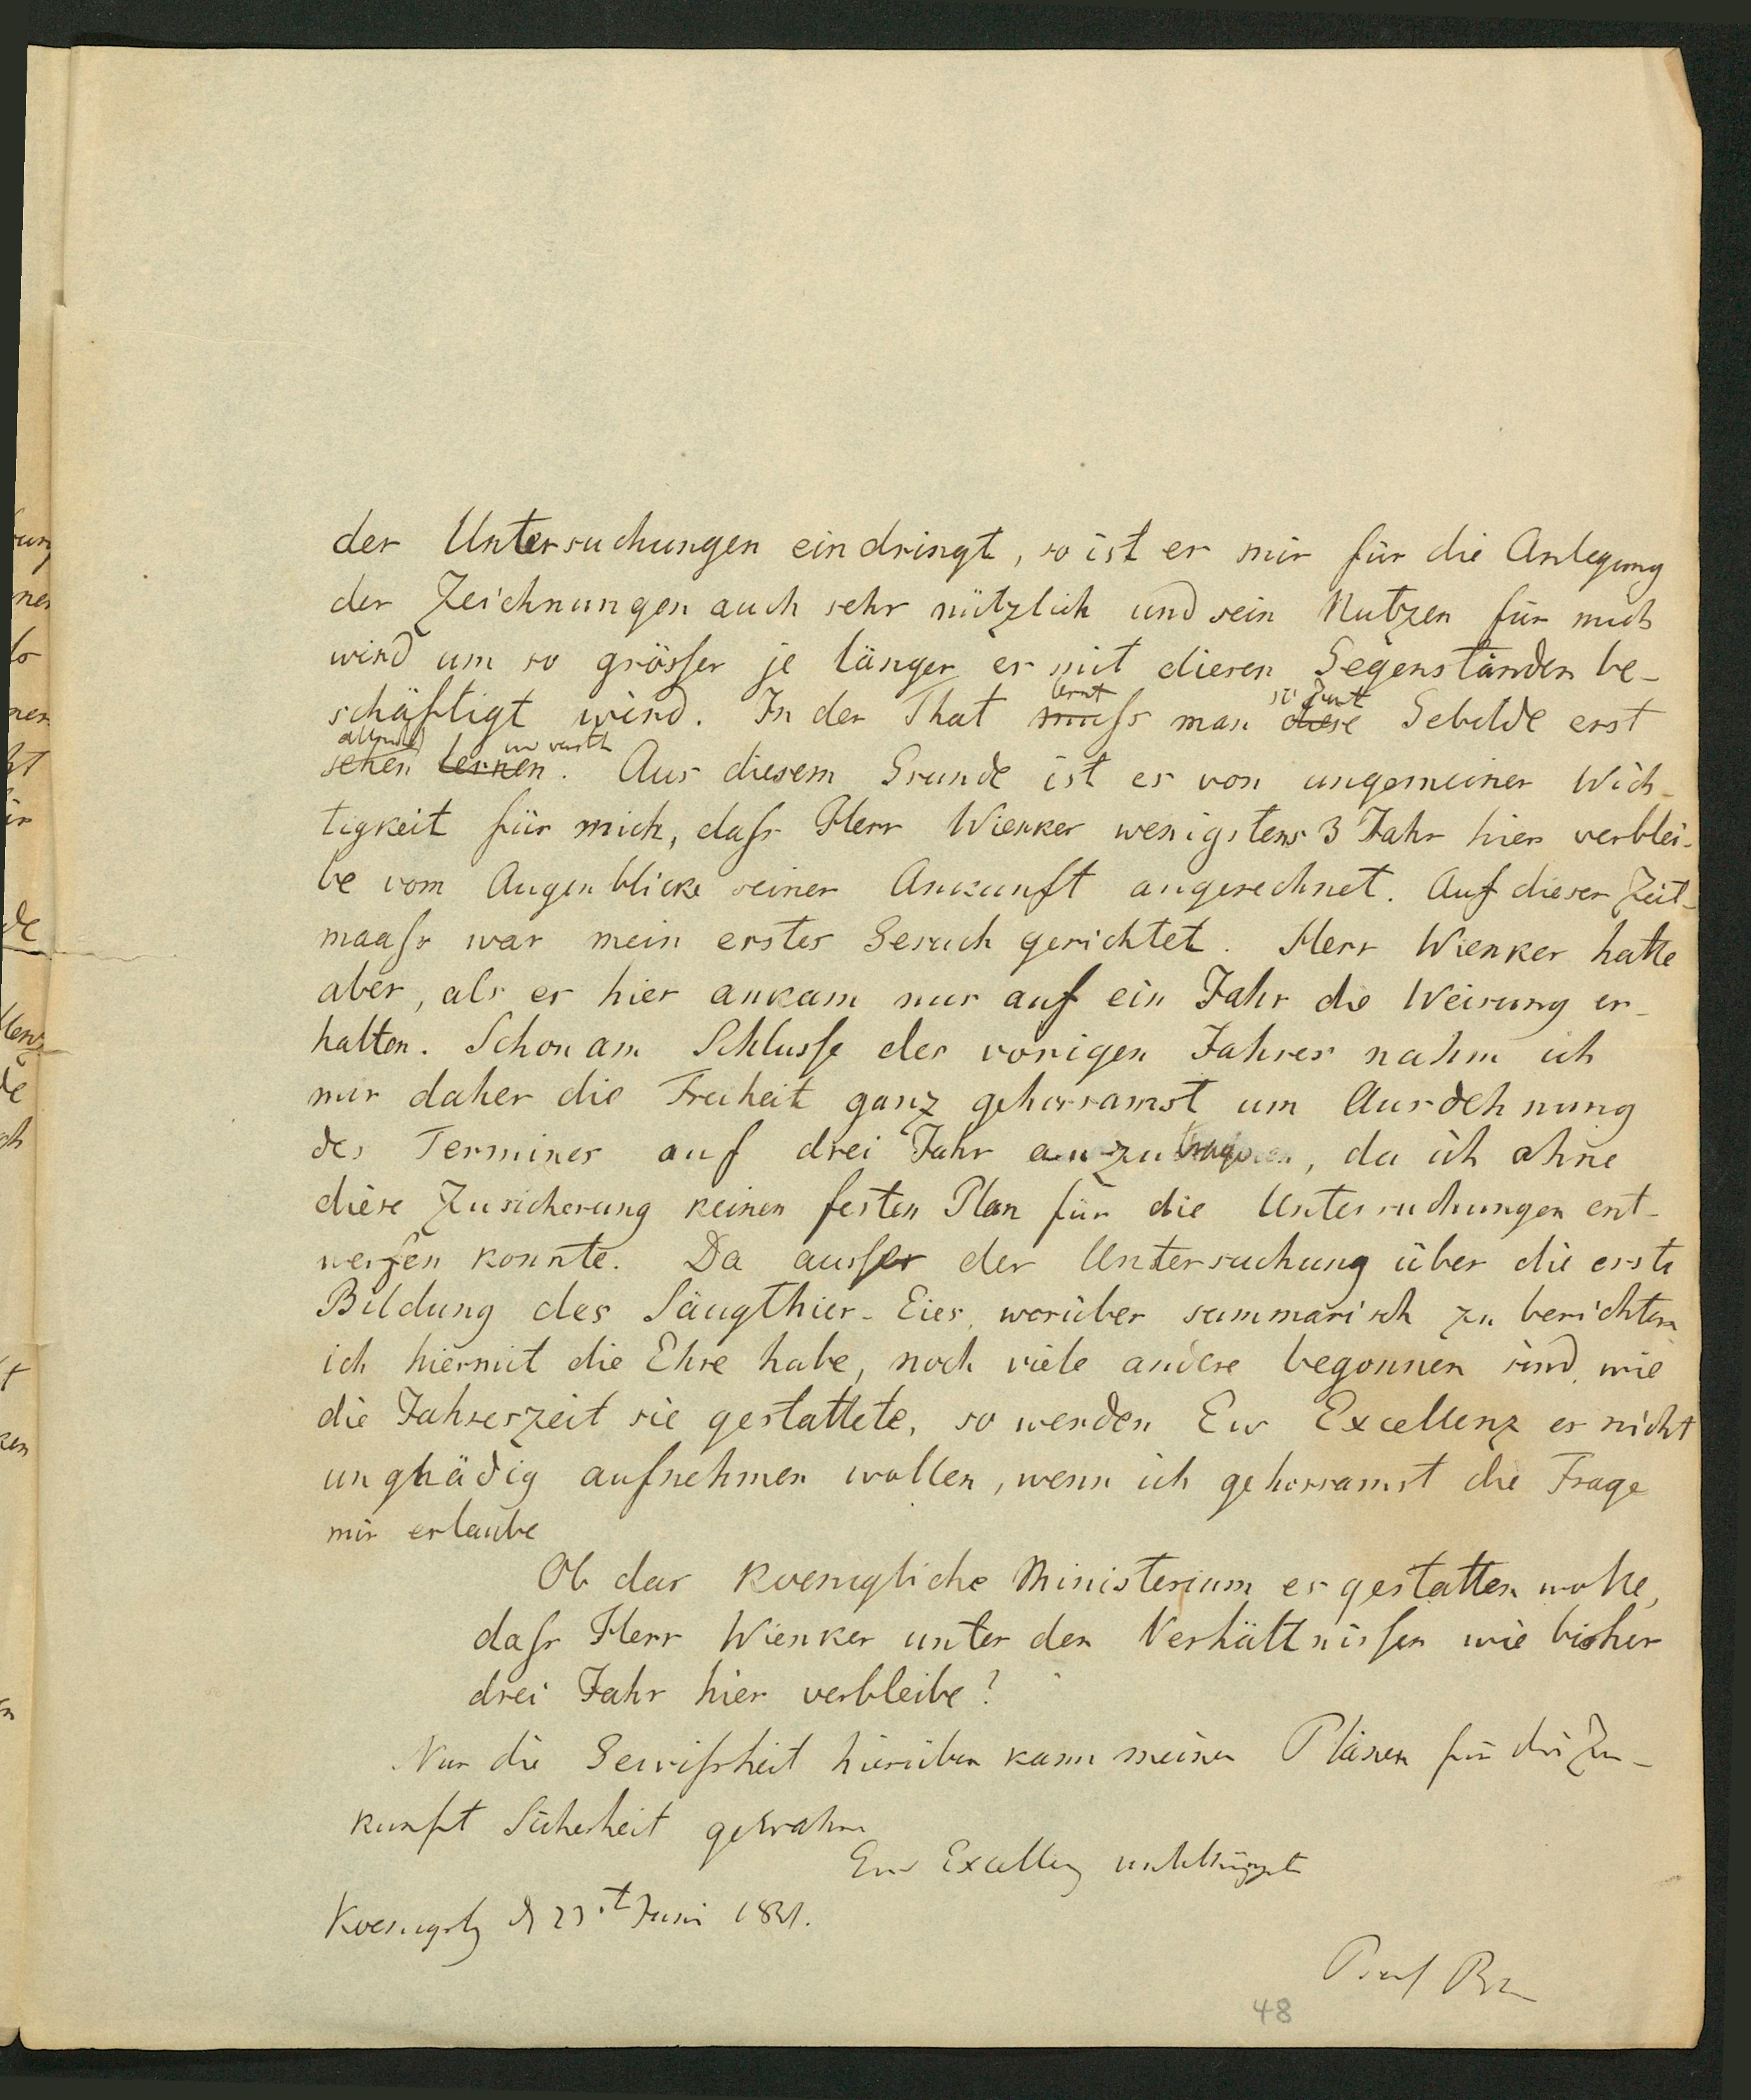 der Untersuchungen eindringt, so ist er mir für die Anlegung
der Zeichnungen auch sehr nützlich und sein Nutzen für mich
wird um so grösser je länger er mit diesen Gegenständen be-
schäftigt wird. In der That muſs lernt man diese so zart Gebilde erst
sehen lernen. Aus diesem Grunde ist es von ungemeiner Wich-
tigkeit für mich, daſs Herr Wienker wenigstens 3 Jahr hier verblei-
be vom Augenblicke seiner Ankunft angerechnet. Auf dieses Zeit-
maaſs war mein erstes Gesuch gerichtet. Herr Wienker hatte
aber, als er hier ankam nur auf ein Jahr die Weisung er-
halten. Schon am Schluſse des vorigen Jahres nahm ich
mir daher die Freiheit ganz gehorsamst um Ausdehnung
des Termines auf drei Jahr anzutragen, da ich ohne
diese Zusicherung keinen festen Plan für die Untersuchungen ent-
werfen konnte. Da ausſer der Untersuchung über die erste
Bildung des Säugthier-Eies, worüber summarisch zu berichten
ich hiermit die Ehre habe, noch viele andere begonnen sind, wie
die Jahreszeit sie gestattete, so werden Ew Excellenz es nicht
ungnädig aufnehmen wollen, wenn ich gehorsamst die Frage
mir erlaube
Ob das Koenigliche Ministerium es gestatten wolle,
daſs Herr Wienker unter den Verhältniſsen wie bisher
drei Jahr hier verbleibe?
Nur die Gewiſsheit hierüber kann meinen Plänen für die Zu-
kunft Sicherheit gewähren
Ew Excellenz
Koenigsbg d 23st Juni 1831.
Prof
48